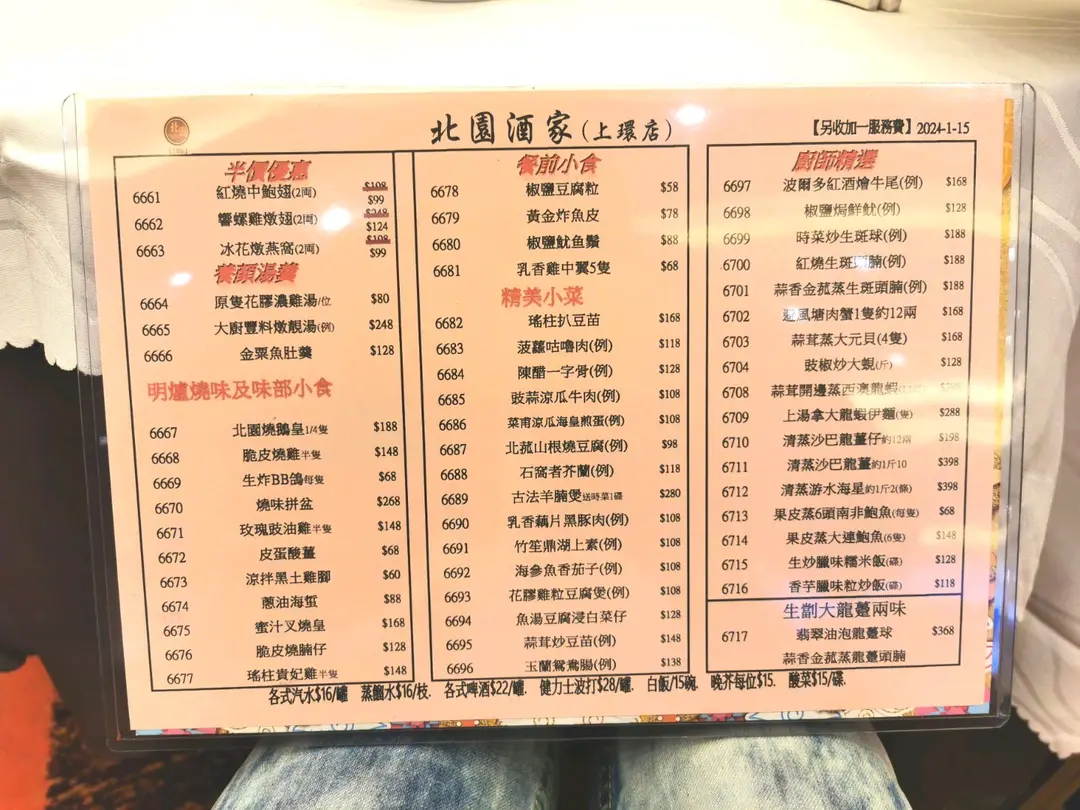 北園酒家(上環店)
【另收加一服務費】2024-1-15
半價優惠
6661 紅燒中鮑翅(2両) $198 $99
6662 響螺雞燉翅(2両) $248 $124
6663 冰花燉燕窩(2両) $198 $99
養顏湯羹
6664 原隻花膠濃雞湯/位 $80
6665 大廚豐料燉靚湯(例) $248
6666 金粟魚肚羹 $128
明爐燒味及味部小食
6667 北園燒鵝皇1/4隻 $188
6668 脆皮燒雞半隻 $148
6669 生炸BB鴿每隻 $68
6670 燒味拼盆 $268
6671 玫瑰豉油雞半隻 $148
6672 皮蛋酸薑 $68
6673 涼拌黑土雞腳 $60
6674 蔥油海蜇 $88
6675 蜜汁叉燒皇 $168
6676 脆皮燒腩仔 $128
6677 瑤柱貴妃雞半隻 $148
餐前小食
6678 椒鹽豆腐粒 $58
6679 黃金炸魚皮 $78
6680 椒鹽魷鱼鬚 $88
6681 乳香雞中翼5隻 $68
精美小菜
6682 瑤柱扒豆苗 $168
6683 菠蘿咕嚕肉(例) $118
6684 陳醋一字骨(例) $128
6685 豉蒜涼瓜牛肉(例) $108
6686 菜甫涼瓜海皇煎蛋(例) $108
6687 北菰山根燒豆腐(例) $98
6688 石窩者芥蘭(例) $118
6689 古法羊腩煲送時菜1碟 $280
6690 乳香藕片黑豚肉(例) $108
6691 竹笙鼎湖上素(例) $108
6692 海參魚香茄子(例) $108
6693 花膠雞粒豆腐煲(例) $108
6694 魚湯豆腐浸白菜仔 $128
6695 蒜茸炒豆苗(例) $148
6696 玉蘭鴛鴦腸(例) $138
廚師精選
6697 波爾多紅酒燴牛尾(例) $168
6698 椒鹽焗鮮魷(例) $128
6699 時菜炒生斑球(例) $188
6700 紅燒生斑頭腩(例) $188
6701 蒜香金菰蒸生斑頭腩(例) $188
6702 避風塘肉蟹1隻約12兩 $168
6703 蒜茸蒸大元貝(4隻) $168
6704 豉椒炒大蜆(斤) $128
6708 蒜茸開邊蒸西澳龍蝦
6709 上湯拿大龍蝦伊麵(隻) $288
6710 清蒸沙巴龍躉仔約12兩 $198
6711 清蒸沙巴龍躉約1斤10 $398
6712 清蒸游水海星約1斤2(條) $398
6713 果皮蒸6頭南非鮑魚(每隻) $68
6714 果皮蒸大連鮑魚(6隻) $148
6715 生炒臘味糯米飯(碟) $128
6716 香芋臘味粒炒飯(碟) $118
生劏大龍躉兩味
6717 翡翠油泡龍躉球 $368
蒜香金菰蒸龍躉頭腩
各式汽水$16/罐 蒸餾水$16/枝. 各式啤酒$22/罐. 健力士波打$28/罐. 白飯/15碗. 晚芥每位$15. 酸菜$15/碟.